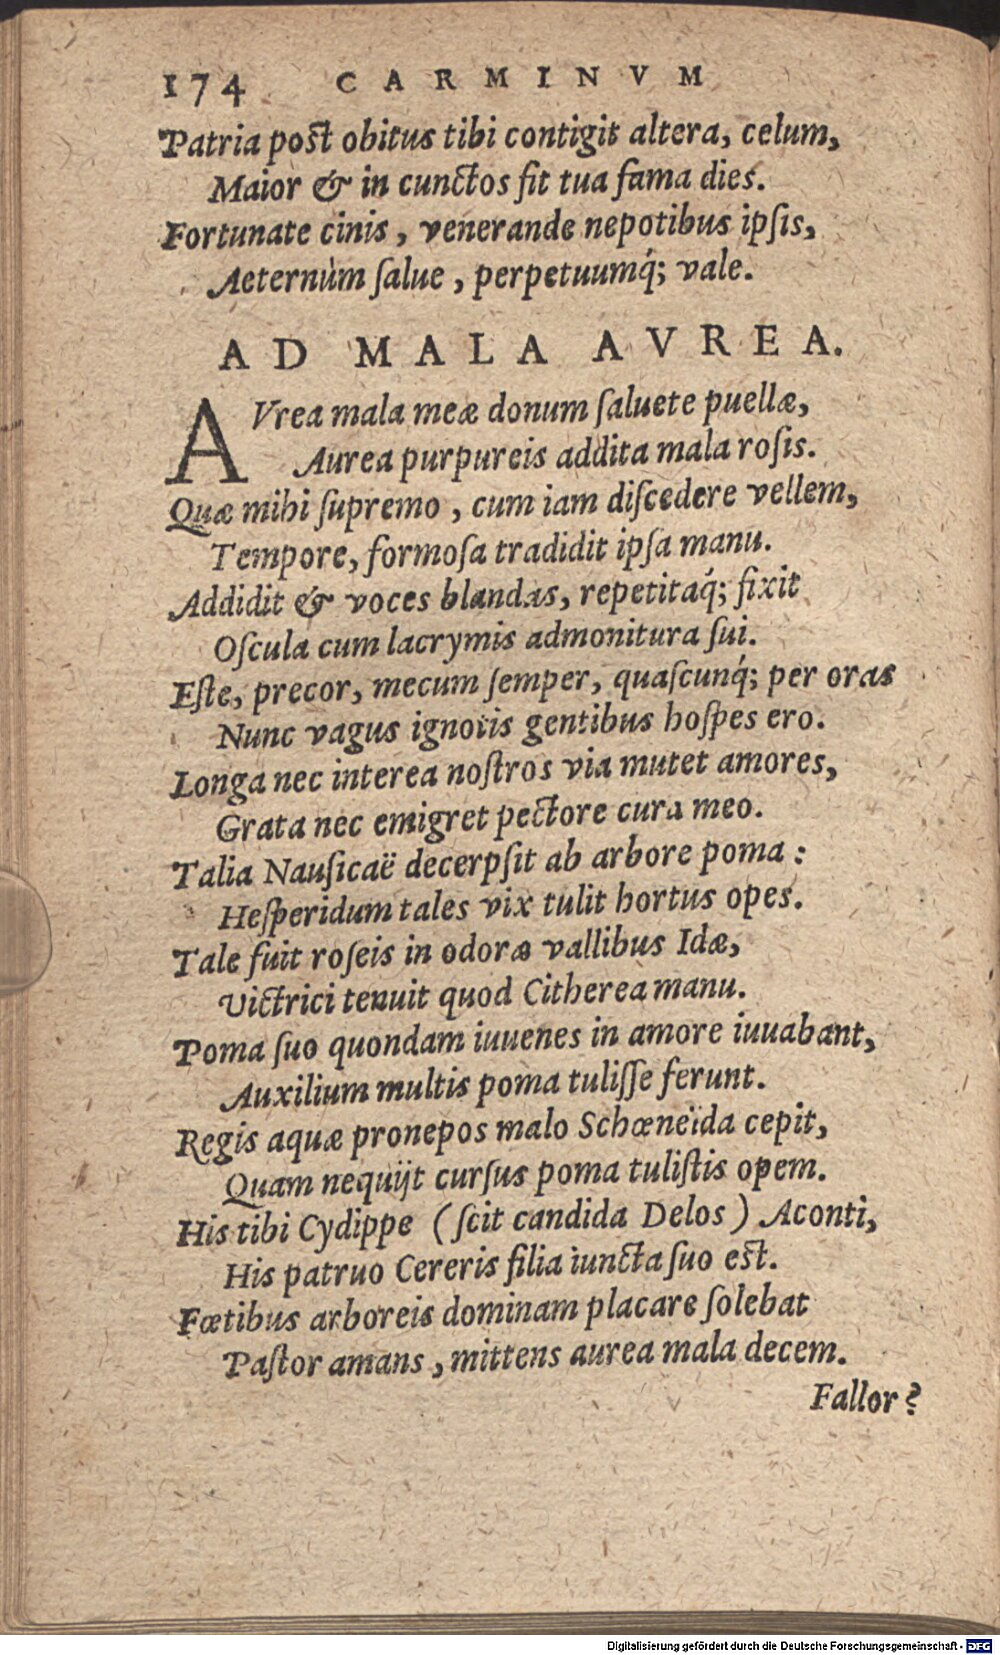 174 CARMINVM
Patria post obitus tibi contigit altera, celum,
Maior & in cunctos fit tua fama dies.
Fortunate cinis, venerande nepotibus ipſis,
Aeternùm ſalue, perpetuumq́; vale.
AD MALA AVREA.
AVrea mala meæ donum ſaluete puellæ,
Aurea purpureis addita mala roſis.
Quæ mihi ſupremo, cum iam diſcedere vellem,
Tempore, formoſa tradidit ipſa manu.
Addidit & voces blandas, repetitaq́; fixit
Oſcula cum lacrymis admonitura ſui.
Eſte, precor, mecum ſemper, quaſcunq́; per oras
Nunc vagus ignotis gentibus hoſpes ero.
Longa nec interea noſtros via mutet amores,
Grata nec emigret pectore cura meo.
Talia Nauſicaë decerpſit ab arbore poma:
Heſperidum tales vix tulit hortus opes.
Tale fuit roſeis in odoræ vallibus Idæ,
Victrici tenuit quod Citherea manu.
Poma ſuo quondam iuuenes in amore iuuabant,
Auxilium multis poma tuliſſe ferunt.
Regis aquæ pronepos malo Schœneïda cepit,
Quam nequijt curſus poma tuliſtis opem.
His tibi Cydippe (ſcit candida Delos) Aconti,
His patruo Cereris filia iuncta ſuo est.
Fœtibus arboreis dominam placare ſolebat
Paſtor amans, mittens aurea mala decem.
Fallor?
Digitalisierung gefördert durch die Deutsche Forschungsgemeinschaft - DFG